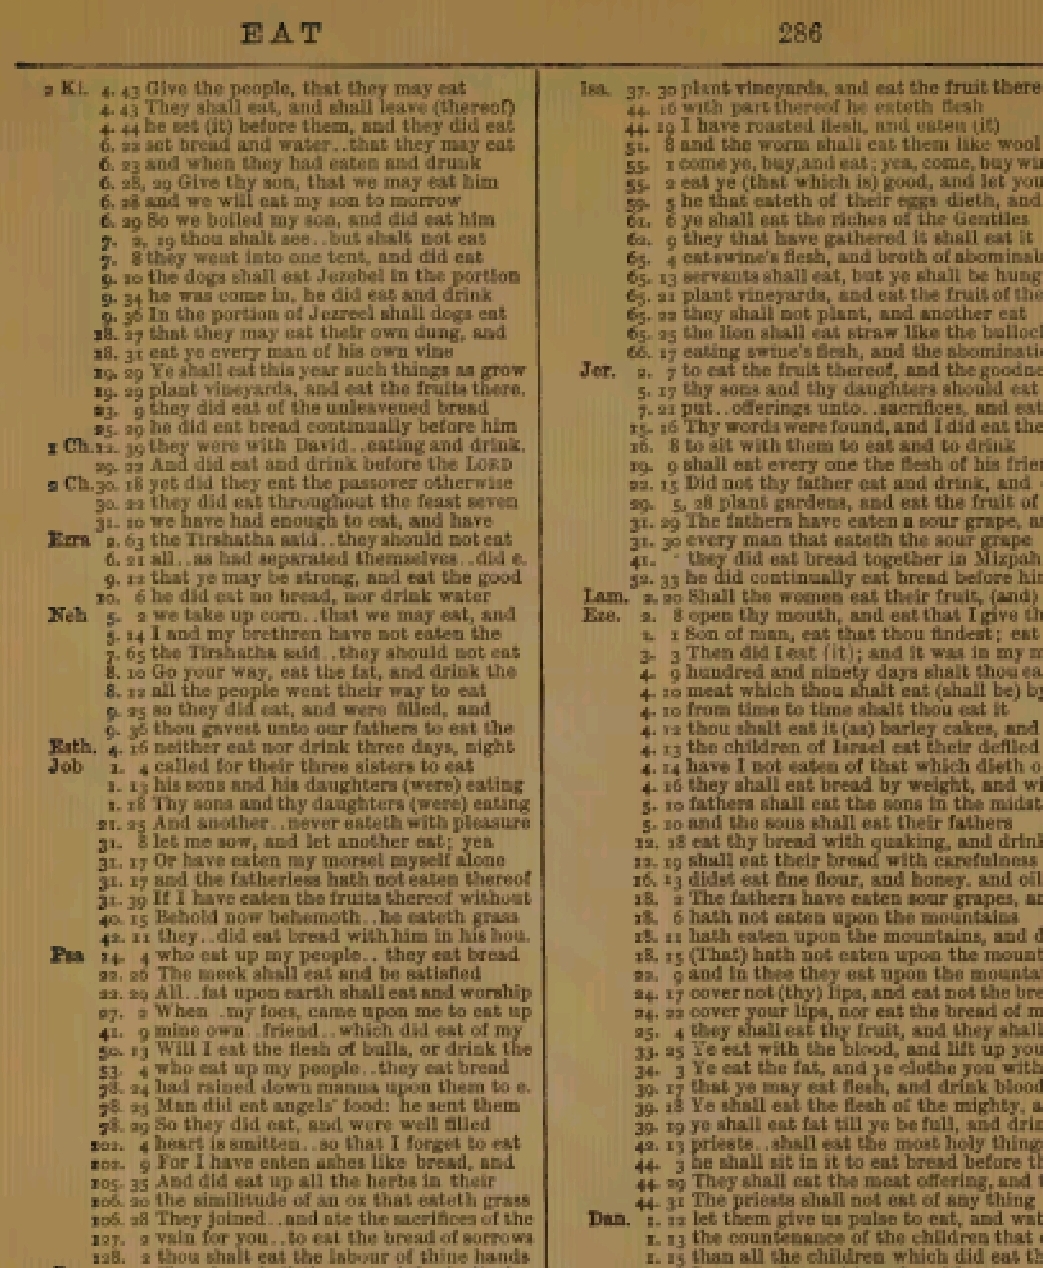 EAT
286
2 Ki. 4. 43 Give the people, that they may eat
4. 43 They shall eat, and shall leave (thereof)
4. 44 he set (it) before them, and they did eat
6. 22 set bread and water..that they may eat
6. 23 and when they had eaten and drunk
6. 28, 29 Give thy son, that we may eat him
6. 28 and we will eat my son to morrow
6. 29 So we boiled my son, and did eat him
7. 2, 19 thou shalt see..but shalt not eat
7. 8 they went into one tent, and did eat
9. 10 the dogs shall eat Jezebel in the portion
9. 34 he was come in, he did eat and drink
9. 36 In the portion of Jezreel shall dogs eat
18. 27 that they may eat their own dung, and
18. 31 eat ye every man of his own vine
19. 29 Ye shall eat this year such things as grow
19. 29 plant vineyards, and eat the fruits there.
23. 9 they did eat of the unleavened bread
25. 29 he did eat bread continually before him
1 Ch. 12. 39 they were with David..eating and drink.
29. 22 And did eat and drink before the LORD
2 Ch. 30. 18 yet did they eat the passover otherwise
30. 22 they did eat throughout the feast seven
31. 10 we have had enough to eat, and have
Ezra 2. 63 the Tirshatha said..they should not eat
6. 21 all..as had separated themselves..did e.
9. 12 that ye may be strong, and eat the good
10. 6 he did eat no bread, nor drink water
Neh 5. 2 we take up corn..that we may eat, and
5. 14 I and my brethren have not eaten the
7. 65 the Tirshatha said..they should not eat
8. 10 Go your way, eat the fat, and drink the
8. 12 all the people went their way to eat
9. 25 so they did eat, and were filled, and
9. 36 thou gavest unto our fathers to eat the
Esth. 4. 16 neither eat nor drink three days, night
Job 1. 4 called for their three sisters to eat
1. 13 his sons and his daughters (were) eating
1. 18 Thy sons and thy daughters (were) eating
21. 25 And another..never eateth with pleasure
31. 8 let me sow, and let another eat; yea
31. 17 Or have eaten my morsel myself alone
31. 17 and the fatherless hath not eaten thereof
31. 39 If I have eaten the fruits thereof without
40. 15 Behold now behemoth..he eateth grass
42. 11 they..did eat bread with him in his hou.
Psa 14. 4 who eat up my people..they eat bread
22. 26 The meek shall eat and be satisfied
22. 29 All..fat upon earth shall eat and worship
27. 2 When .my foes, came upon me to eat up
41. 9 mine own..friend..which did eat of my
50. 13 Will I eat the flesh of bulls, or drink the
53. 4 who eat up my people..they eat bread
78. 24 had rained down manna upon them to e.
78. 25 Man did eat angels' food: he sent them
78. 29 So they did eat, and were well filled
102. 4 heart is smitten..so that I forget to eat
102. 9 For I have eaten ashes like bread, and
105. 35 And did eat up all the herbs in their
106. 20 the similitude of an ox that eateth grass
106. 28 They joined..and ate the sacrifices of the
127. 2 vain for you..to eat the bread of sorrows
128. 2 thou shalt eat the labour of thine hands
Isa. 37. 30 plant vineyards, and eat the fruit there
44. 16 with part thereof he eateth flesh
44. 19 I have roasted flesh, and eaten (it)
51. 8 and the worm shall eat them like wool
55. 1 come ye, buy, and eat; yea, come, buy wi
55. 2 eat ye (that which is) good, and let you
59. 5 he that eateth of their eggs dieth, and
61. 6 ye shall eat the riches of the Gentiles
62. 9 they that have gathered it shall eat it
65. 4 eat swine's flesh, and broth of abominab
65. 13 servants shall eat, but ye shall be hung
65. 21 plant vineyards, and eat the fruit of the
65. 22 they shall not plant, and another eat
65. 25 the lion shall eat straw like the bulloc
66. 17 eating swine's flesh, and the abominatio
Jer. 2. 7 to eat the fruit thereof, and the goodne
5. 17 thy sons and thy daughters should eat
7. 21 put..offerings unto..sacrifices, and eat
15. 16 Thy words were found, and I did eat the
16. 8 to sit with them to eat and to drink
19. 9 shall eat every one the flesh of his frien
22. 15 Did not thy father eat and drink, and
29. 5, 28 plant gardens, and eat the fruit of
31. 29 The fathers have eaten a sour grape, a
31. 30 every man that eateth the sour grape
41. they did eat bread together in Mizpah
52. 33 he did continually eat bread before hi
Lam. 2. 20 Shall the women eat their fruit, (and)
Eze. 2. 8 open thy mouth, and eat that I give th
1 Son of man, eat that thou findest; eat
3. 3 Then did I eat (it); and it was in my m
4. 9 hundred and ninety days shalt thou ea
4. 10 meat which thou shalt eat (shall be) by
4. 10 from time to time shalt thou eat it
4. 12 thou shalt eat it (as) barley cakes, and
4. 13 the children of Israel eat their defiled
4. 14 have I not eaten of that which dieth o
4. 16 they shall eat bread by weight, and wi
5. 10 fathers shall eat the sons in the midst
5. 10 and the sons shall eat their fathers
12. 18 eat thy bread with quaking, and drin
12. 19 shall eat their bread with carefulness
16. 13 didst eat fine flour, and honey. and oil
18. 2 The fathers have eaten sour grapes, an
18. 6 hath not eaten upon the mountains
18. 11 hath eaten upon the mountains, and d
18. 15 (That) hath not eaten upon the mount
22. 9 and in thee they eat upon the mounta
24. 17 cover not (thy) lips, and eat not the bre
24. 22 cover your lips, nor eat the bread of m
25. 4 they shall eat thy fruit, and they shall
33. 25 Ye eat with the blood, and lift up you
34. 3 Ye eat the fat, and ye clothe you with
39. 17 that ye may eat flesh, and drink blood
39. 18 Ye shall eat the flesh of the mighty, a
39. 19 ye shall eat fat till ye be full, and drin
42. 13 priests..shall eat the most holy things
44. 3 he shall sit in it to eat bread before th
44. 29 They shall eat the meat offering, and t
44. 31 The priests shall not eat of any thing
Dan. 1. 12 let them give us pulse to eat, and wat
1. 13 the countenance of the children that
1. 15 than all the children which did eat th